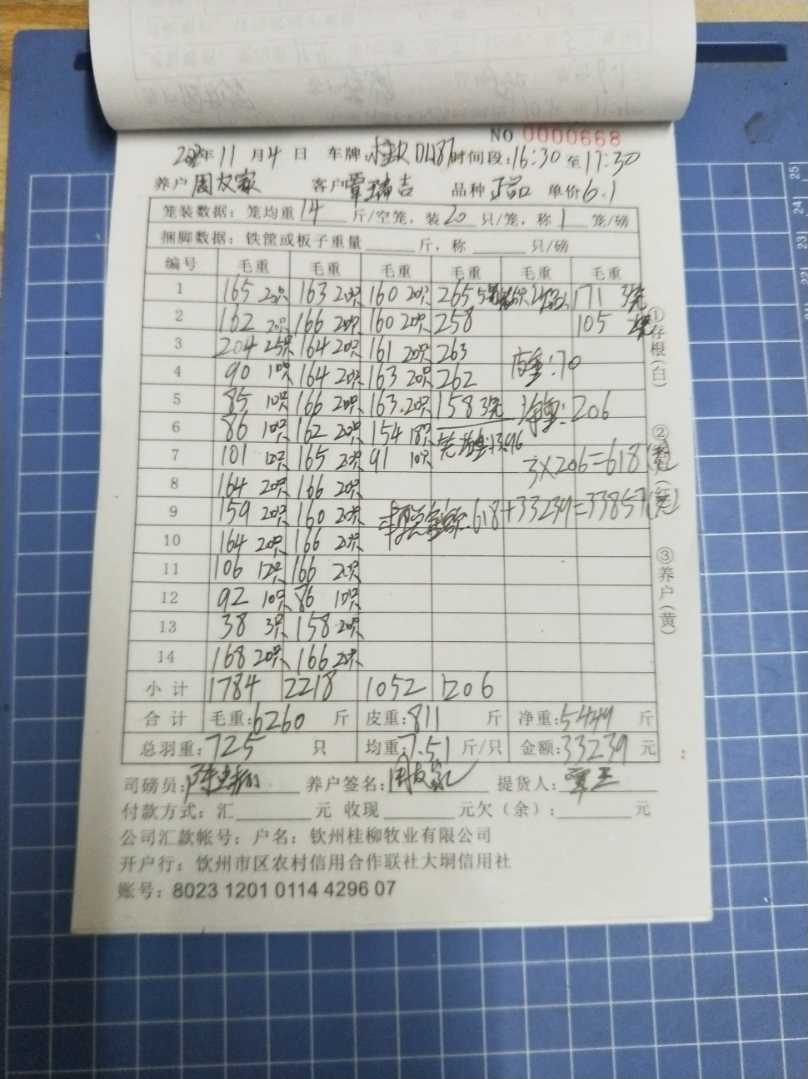 NO 0000668
年 11 月 4 日 车牌: 0487 时间段: 16:30 至 17:30
养户 周友家 客户 覃瑞吉 品种 正品 单价 6.1
笼装数据: 笼均重 14 斤/空笼, 装 20 只/笼, 称 1 笼/磅
捆脚数据: 铁筐或板子重量 斤, 称 只/磅
编号 毛重 毛重 毛重 毛重 毛重 毛重
1 165 20只 163 20只 160 20只 265 5笼 171 3笼
2 162 20只 166 20只 160 20只 258 105 2笼
3 204 25只 164 20只 161 20只 263
4 90 10只 164 20只 163 20只 262 皮重:70
5 85 10只 166 20只 163 20只 158 3笼 净重:206
6 86 10只 162 20只 154 18只
7 101 12只 165 20只 91 10只 3×206=618(元)
8 164 20只 166 20只
9 159 20只 160 20只 618+33239=33857(元)
10 164 20只 166 20只
11 106 12只 166 20只
12 92 10只 86 10只
13 38 3只 158 20只
14 168 20只 166 20只
小计 1784 2218 1052 1206
合计 毛重:6260 斤 皮重:811 斤 净重:5449 斤
总羽重:725 只 均重:7.51 斤/只 金额:33239 元
司磅员: 养户签名:周友家 提货人:
付款方式:汇 元 收现 元欠(余): 元
公司汇款帐号: 户名: 钦州桂柳牧业有限公司
开户行: 钦州市区农村信用合作联社大垌信用社
账号: 8023 1201 0114 4296 07
①存根(白)
②
③养户(黄)